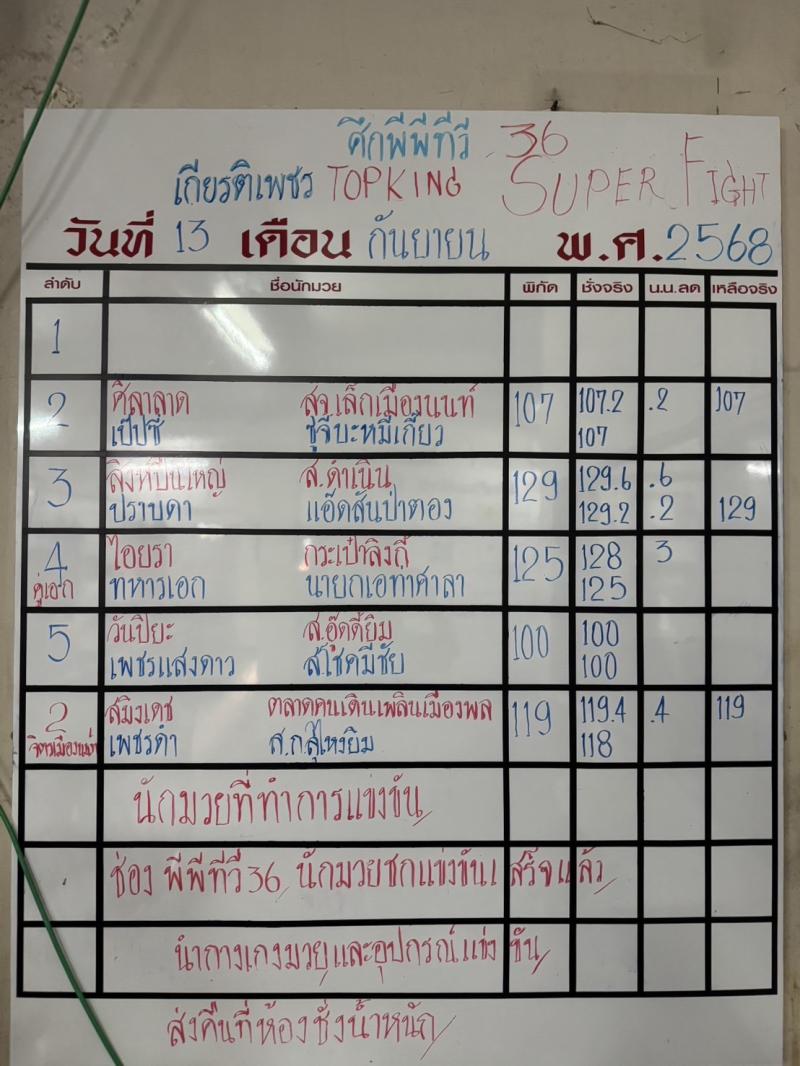 ศึกพีพีทีวี 36
เกียรติเพชร TOPKING SUPER FIGHT
วันที่ 13 เดือน กันยายน พ.ศ. 2568
ลำดับ ชื่อนักมวย พิกัด ชั่งจริง น.น.ลด เหลือจริง
1
2 ศิลาลาด สจ.เล็กเมืองนนท์ 107 107.2 .2 107
เป๊ปซี่ ชูจีบะหมี่เกี๊ยว 107
3 สิงห์ปืนใหญ่ ส.ดำเนิน 129 129.6 .6
ปราบดา แอ๊ดสันป่าตอง 129.2 .2 129
4 ไอยรา กระเป๋าลิงกี้ 125 128 3
คู่เอก ทหารเอก นายกเอท่าศาลา 125
5 วันปิยะ ส.อู๊ดดี้ยิม 100 100
เพชรแสงดาว ส.โชคมีชัย 100
2 สมิงเดช ตลาดคนเดินเพลินเมืองพล 119 119.4 .4 119
เพชรดำ ส.กลุ่ไหงยิม 118
นักมวยที่ทำการแข่งขัน
ช่อง พีพีทีวี 36 นักมวยชกแข่งขันเสร็จแล้ว
นำกางเกงมวยและอุปกรณ์แข่งขัน
ส่งคืนที่ห้องชั่งน้ำหนัก